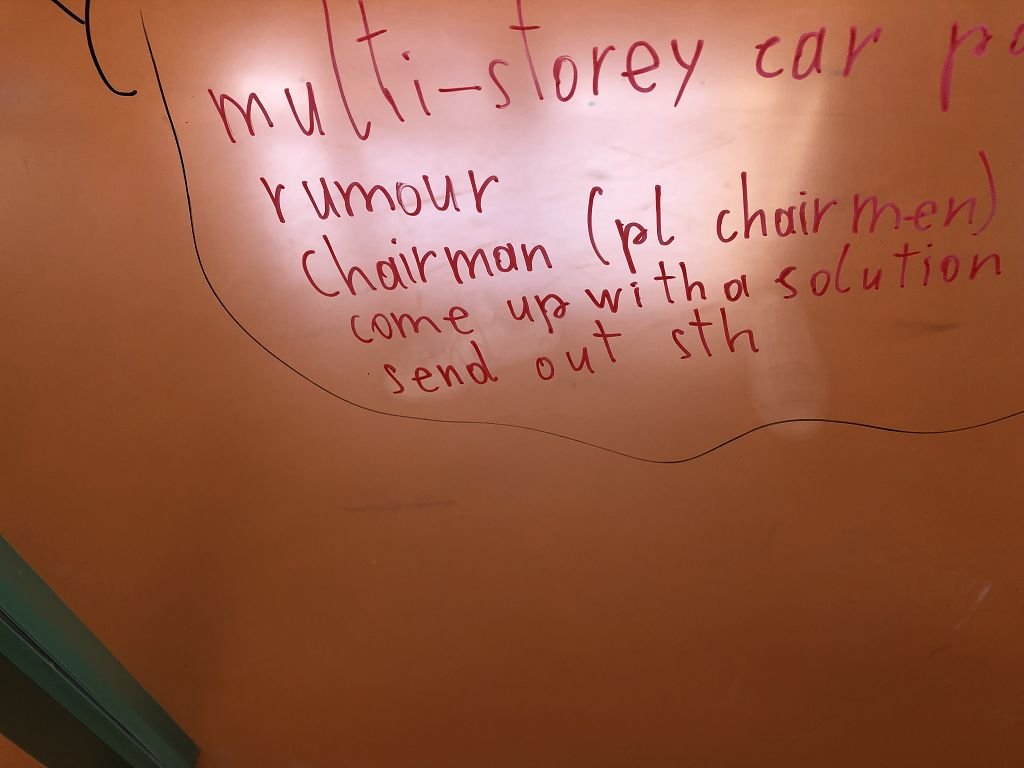 multi-storey car
rumour
Chairman (pl chairmen)
come up with a solution
send out sth